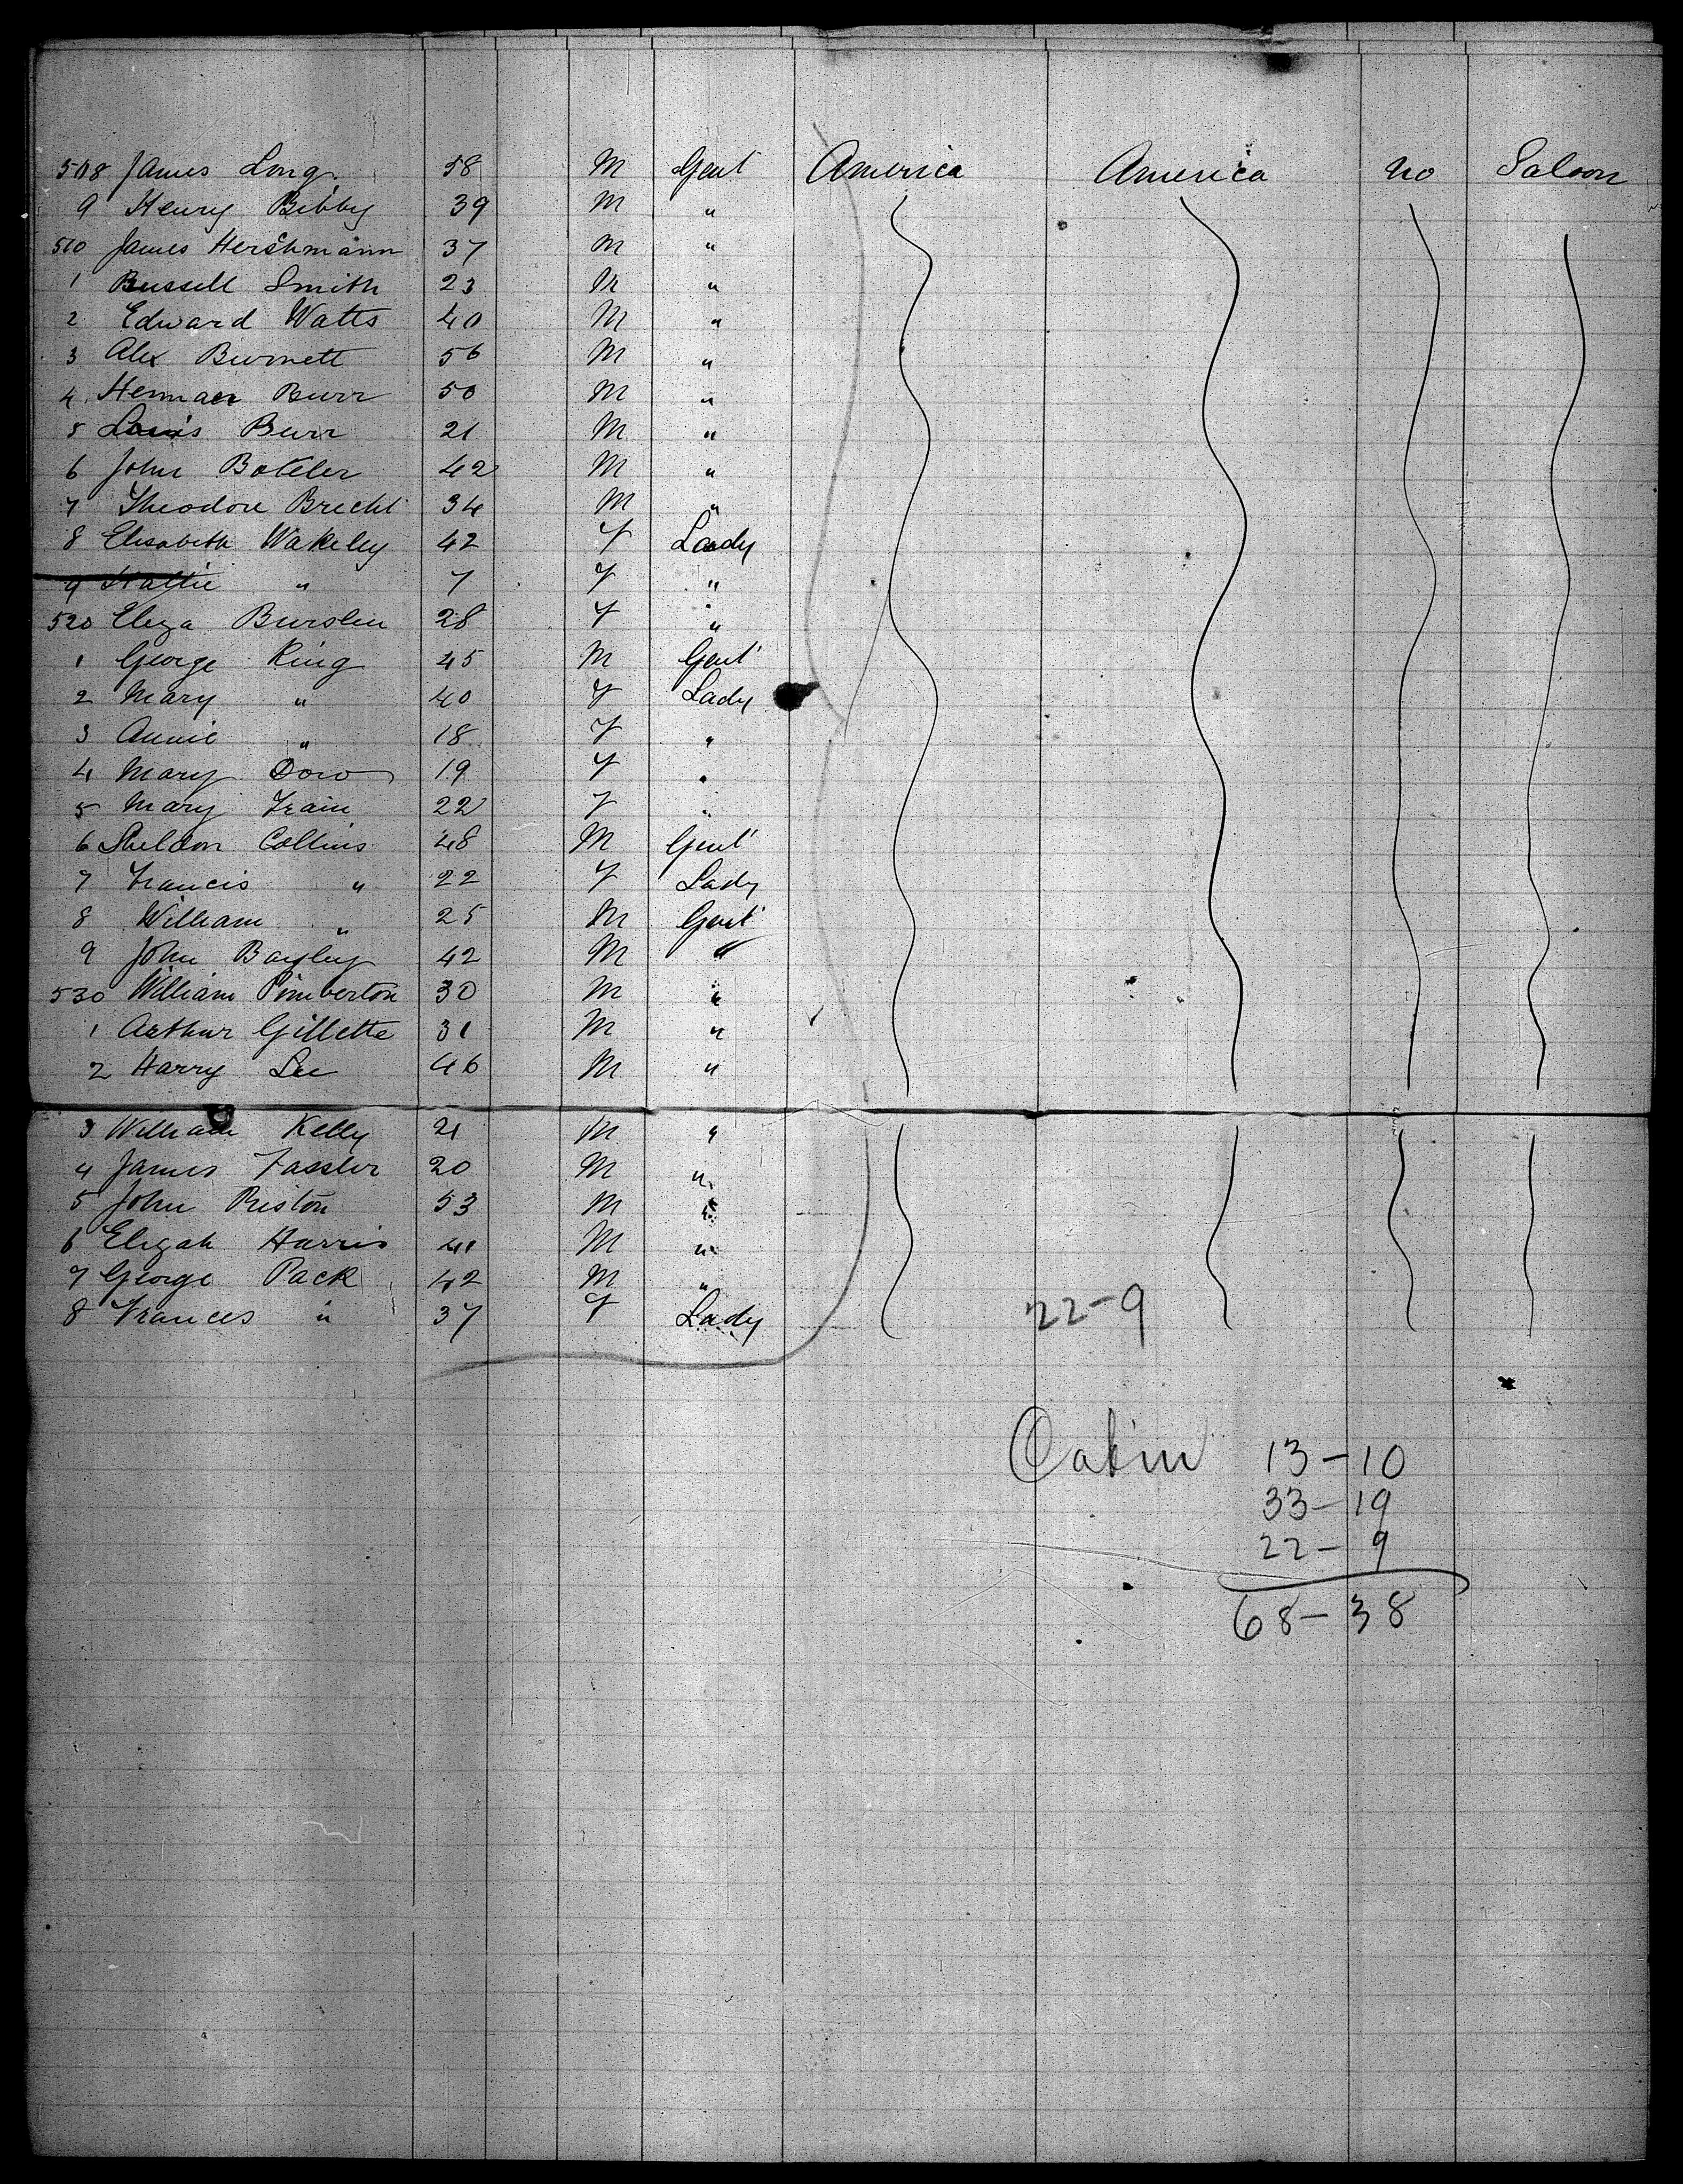 508 James Long 58 M Gent America America no Saloon
9 Henry Bibby 39 M "
510 James Hershmann 37 M "
1 Russell Smith 23 M "
2 Edward Watts 40 M "
3 Alex Burnett 56 M "
4 Herman Burr 50 M "
5 Louis Burr 21 M "
6 John Boteler 42 M "
7 Theodore Brecht 34 M "
8 Elisabeth Wakeley 42 F Lady
9 Hattie " 7 F "
520 Eliza Burslem 28 F "
1 George King 45 M Gent
2 Mary " 40 F Lady
3 Annie " 18 F "
4 Mary Dow 19 F "
5 Mary Train 22 F "
6 Sheldon Collins 48 M Gent
7 Francis " 22 F Lady
8 William " 25 M Gent
9 John Bayley 42 M "
530 William Pimberton 30 M "
1 Arthur Gillette 31 M "
2 Harry Lee 46 M "
3 William Kelly 21 M "
4 James Fassler 20 M "
5 John Piston 53 M "
6 Elijah Harris 41 M "
7 George Pack 42 M "
8 Frances " 37 F Lady
22-9
Cabin 13-10
33-19
22-9
68-38